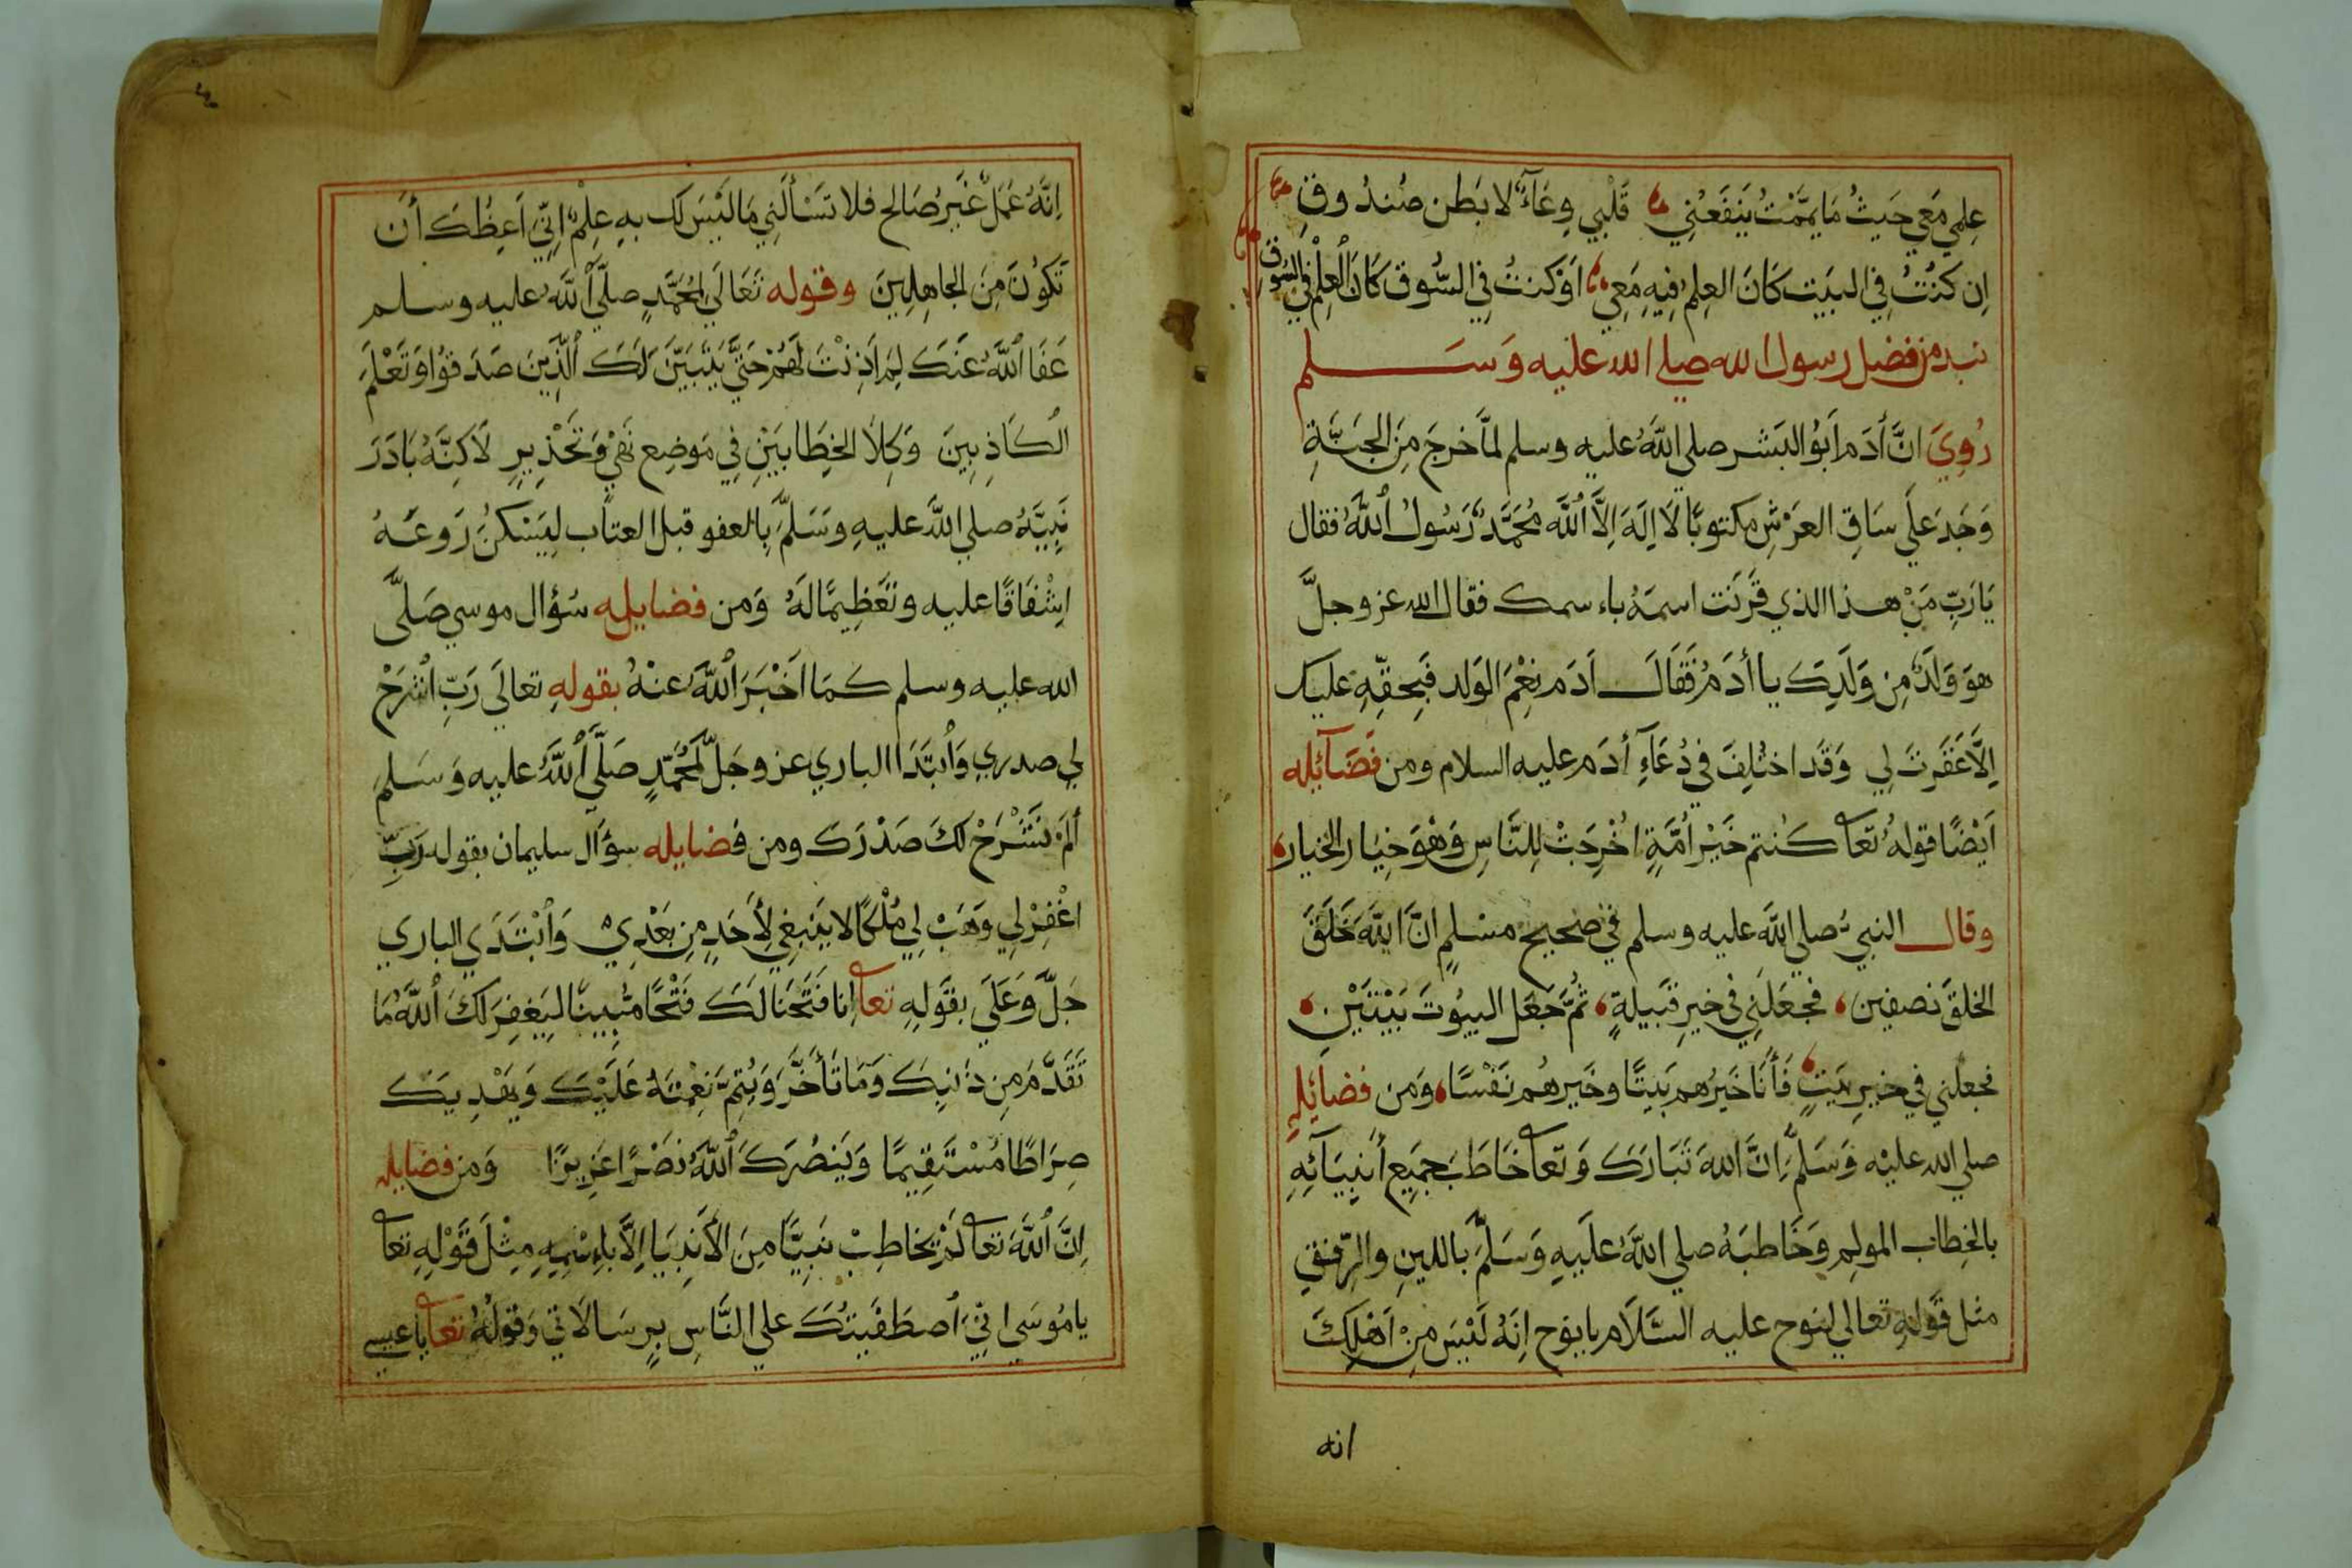 عِلمِي مَعِي حَيثُ مَا يَمَّمْتُ يَنفَعُنِي قَلْبِي وِعَآءٌ لا بَطن صُندُوقِ
اِن كُنْتُ فِي البَيت كَانَ العِلمُ فِيهِ مَعِي اَوْ كنتُ فِي السُّوق كَانَ العِلْمُ فِي السُّوقِ
نبد من فضل رسول الله صلي الله عليه وَسَلم
رُوِيَ انَّ أدَم اَبُو البَشر صلي اللَّهُ عليه وسلم لمَّا خرجَ مِنَ الجَنَّةِ
وَجَدَ عَلَي سَاقِ العَرْشِ مكتوبًا لَا اِلَهَ اِلَّا اللَّه مُحَمَّدٌ رَسُولُ اللَّهُ فقال
يَا رَبِّ مَنْ هذا الذي قَرَنت اسمَهُ باءسمك فقال الله عز وجلَّ
هوَ وَلَدٌ مِن وَلَدِكَ يا أدَمُ فَقَالَ اَدَم نِعْمَ الوَلد فَبِحقِّهِ عليك
اِلَّا غَفَرتَ لِي وَقَد اختُلِفَ فِي دُعَاءِ أدَم عليه السلام ومن فَضَآئِله
اَيْضًا قولهُ تعا كنتم خَيْرَ اُمَّةٍ اُخْرِجَتْ لِلنَّاسِ وَهْوَ خِيَار الخيار
وقال النبي صلي اللَّه عليه وسلم في صحيح مسْلمٍ انَّ اللَّهَ خَلَقَ
الخلقَ نصفين فجعَلَنِي فِي خيرِ قَبيلةٍ ثُمَّ جَعَل البيُوتَ بَيْتَيْنِ
فجعلني في خيرِ بَيتٍ فَأنَا خَيرُهم بَيتًا وخَيرهُم نَفْسًا وَمن فضائِلهِ
صلي الله عليْه وَسَلمَّ اِنَّ اللهَ تَبَارَكَ وَتعا خَاطَبَ جمَيِع أنبِيَآئِهِ
بالخِطاب المولِم وَخَاطبَهُ صلي اللَّهُ عَلَيهِ وَسَلمَّ باللينِ والرِّفقِ
مثل قَولهِ تعالي لنوح عليه السَّلَام يا نوح اِنهُ لَيْسَ مِنْ اَهْلِكَ
انه
اِنَّهُ عَمَلٌ غَيرُ صَالح فلا تَسْألَنِي مَا لَيْسَ لَك بهِ عِلْمٌ اِنِّي اَعِظُكَ أن
تَكُونَ مِنَ الجاهِلِينَ وقوله تَعَالَي لمُحَمَّدٍ صلَّي اللَّهُ عليه وسلم
عَفَا اللَّهُ عَنكَ لِمَ اَذِنْتَ لَهُمْ حَتَّي يَتَبَيَّنَ لَكَ الَّذِينَ صَدَقُوا وَتَعْلَمَ
الكَاذِبِينَ وَكِلَا الخِطَابَيْنِ فِي مَوضِع نَهْيٍ وَتَحْذِيرٍ لَاكِنَّهُ بَادَرَ
نَبِيَّهُ صلي اللَّه عليهِ وَسَلمَّ بِالعفو قبل العتاب لِيَسْكنُ رَوعَهُ
اِشْفَاقًا عليه وتَعْظِيمًا لَهُ وَمن فضايله سُؤال موسي صَلَّى
الله عليه وسلم كمَا اَخْبَرَ اللَّهُ عنْهُ بقولهِ تعالَي رَبِّ اشْرَحْ
لِي صدري وَابتَدَا الباري عز وجَلَّ لمُحَمَّدٍ صَلَّي اللَّهُ عليه وَسَلم
ألَمْ نَشْرَحْ لكَ صَدْرَكَ ومن فضايله سؤَال سليمان بقوله رَبِّ
اغْفِرْ لِي وَهَبْ لِي مُلْكًا لا يَنبغِي لِأحَدٍ مِن بَعْدِيْ وَابْتَدَي الباري
جَلَّ وَعَلَي بِقَولِهِ تعا اِنا فَتَحْنَا لَكَ فَتْحًا مُّبِينًا لِيَغْفِرَ لكَ اللَّهُ مَا
تَقَدَّمَ مِن ذَنبِكَ وَمَا تَأخَّرَ وَيُتِمَّ نِعْمتَهُ عَلَيْكَ وَيَهْدِيَكَ
صِرَاطًا مُسْتَقِيمًا وَيَنصُرَكَ اللَّهُ نَصْرًا عَزِيزًا وَمن فضايله
اِنَّ اللَّهَ تعا لَمْ يخاطِبْ نَبِيًّا مِنَ الأنبِيَا اِلَّا بِاسْمِهِ مِثْلَ قَوْلِهِ تعا
يامُوسَي انِّي اصطَفَيتُكَ علي النَّاسِ بِرِسَالَاتي وَقولهُ تعا ياعيسي